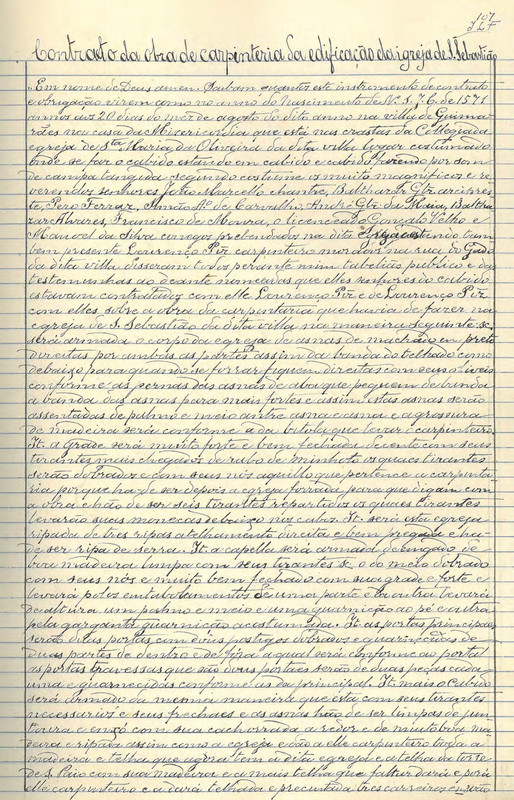 107
Contrato da obra de carpinteria da edificação da igreja de S. Sebastião
"Em nome de Deus amen. Saibam quantos este instrumento de contrato
e obrigação virem como no anno do Nascimento de N. S. J. C. de 1571
annos aos 20 dias do mez de agosto do dito anno na villa de Guima-
rães na casa da Misericordia que está nas crastas da Collegiada
egreja de Sta Maria da Oliveira da dita villa logar costumado
onde se faz o cabido estando em cabido e cabido fazendo por som
de campa tangida segundo costume os muito magnificos e re-
verendos senhores João Marcello chantre, Balthazar Glz arcipres-
te, Pero Ferraz, Simão Als de Carvalho, André Glz da Maia, Baltha-
zar Alvares, Francisco de Moura, o licenceado Gonçalo Velho e
Manoel da Silva conegos prebendados na dita Egreja estando tam
bem presente Lourenço Piz carpinteiro morador na rua do Gado
da dita villa disseram todos perante mim tabelião publico e das
testemunhas ao deante nomeadas que elles senhores do cabido
estavam contratados com elle Lourenço Piz e de Lourenço Piz
com elles sobre a obra da carpintaria que havia de fazer na
egreja de S. Sebastião da dita villa na maneira seguinte: sc.
será armado o corpo da egreja de asnas de machado em preto
direitas por ambas as partes assim da banda do telhado como
debaixo para quando se forrar fiquem direitas com seus niveis
conforme as pernas das asnas de aba que peguem de banda
a banda das asnas para mais fortes e assim stas asnas serão
assentadas de palmo e meio antre asna e asna e a grossura
de madeira será conforme á da bitola que levar o carpinteiro.
It. a grade será muito forte e bem fechada de canto com seus
tirantes mais chegados de rabo de minhoto os quaes tirantes
serão dobrados e com seus nós aquillo que pertence a carpinta-
ria porque ha de ser depois a egreja forrada para que digam com
a obra e hão de ser seis tirantes repartidos os quaes tirantes
levarão suas monecas debaixo nos cabos. It. será esta egreja
ripada de tres ripas a telhamento direita e bem pregada e ha-
de ser ripa de serra. It. a capella será armada de
boa madeira limpa com seus tirantes sc. o do meio dobrado
com seus nós e muito bem fechado com sua grade forte e
levará polos entabolamentos de uma parte e da outra levará
de altura um palmo e meio e uma guarnição ao pé e outra
pela garganta guarnição acostumada. It. as portas principaes
serão duas portas com dois postigos dobrados e guarnecidas de
duas partes de dentro e de fora a qual será conforme ao portal
as portas travessas que são dous portaes serão de duas peças cada
uma e guarnecidas conforme as da principal. It. mais o Cabido
será armado da mesma maneira que está com seus tirantes
necessarios e seus frechaes e as asnas hão de ser limpas de jun-
toura e enxó com sua cachorrada a redor e de muito boa ma-
deira e ripada assim como a egreja e dão a elle carpinteiro toda a
madeira e telha que agora tem a dita egreja e a telha da torre
de S. Paio com sua madeira e a mais telha que faltar dará e porá
elle carpinteiro e a dará telhada e precintada tres carreiros